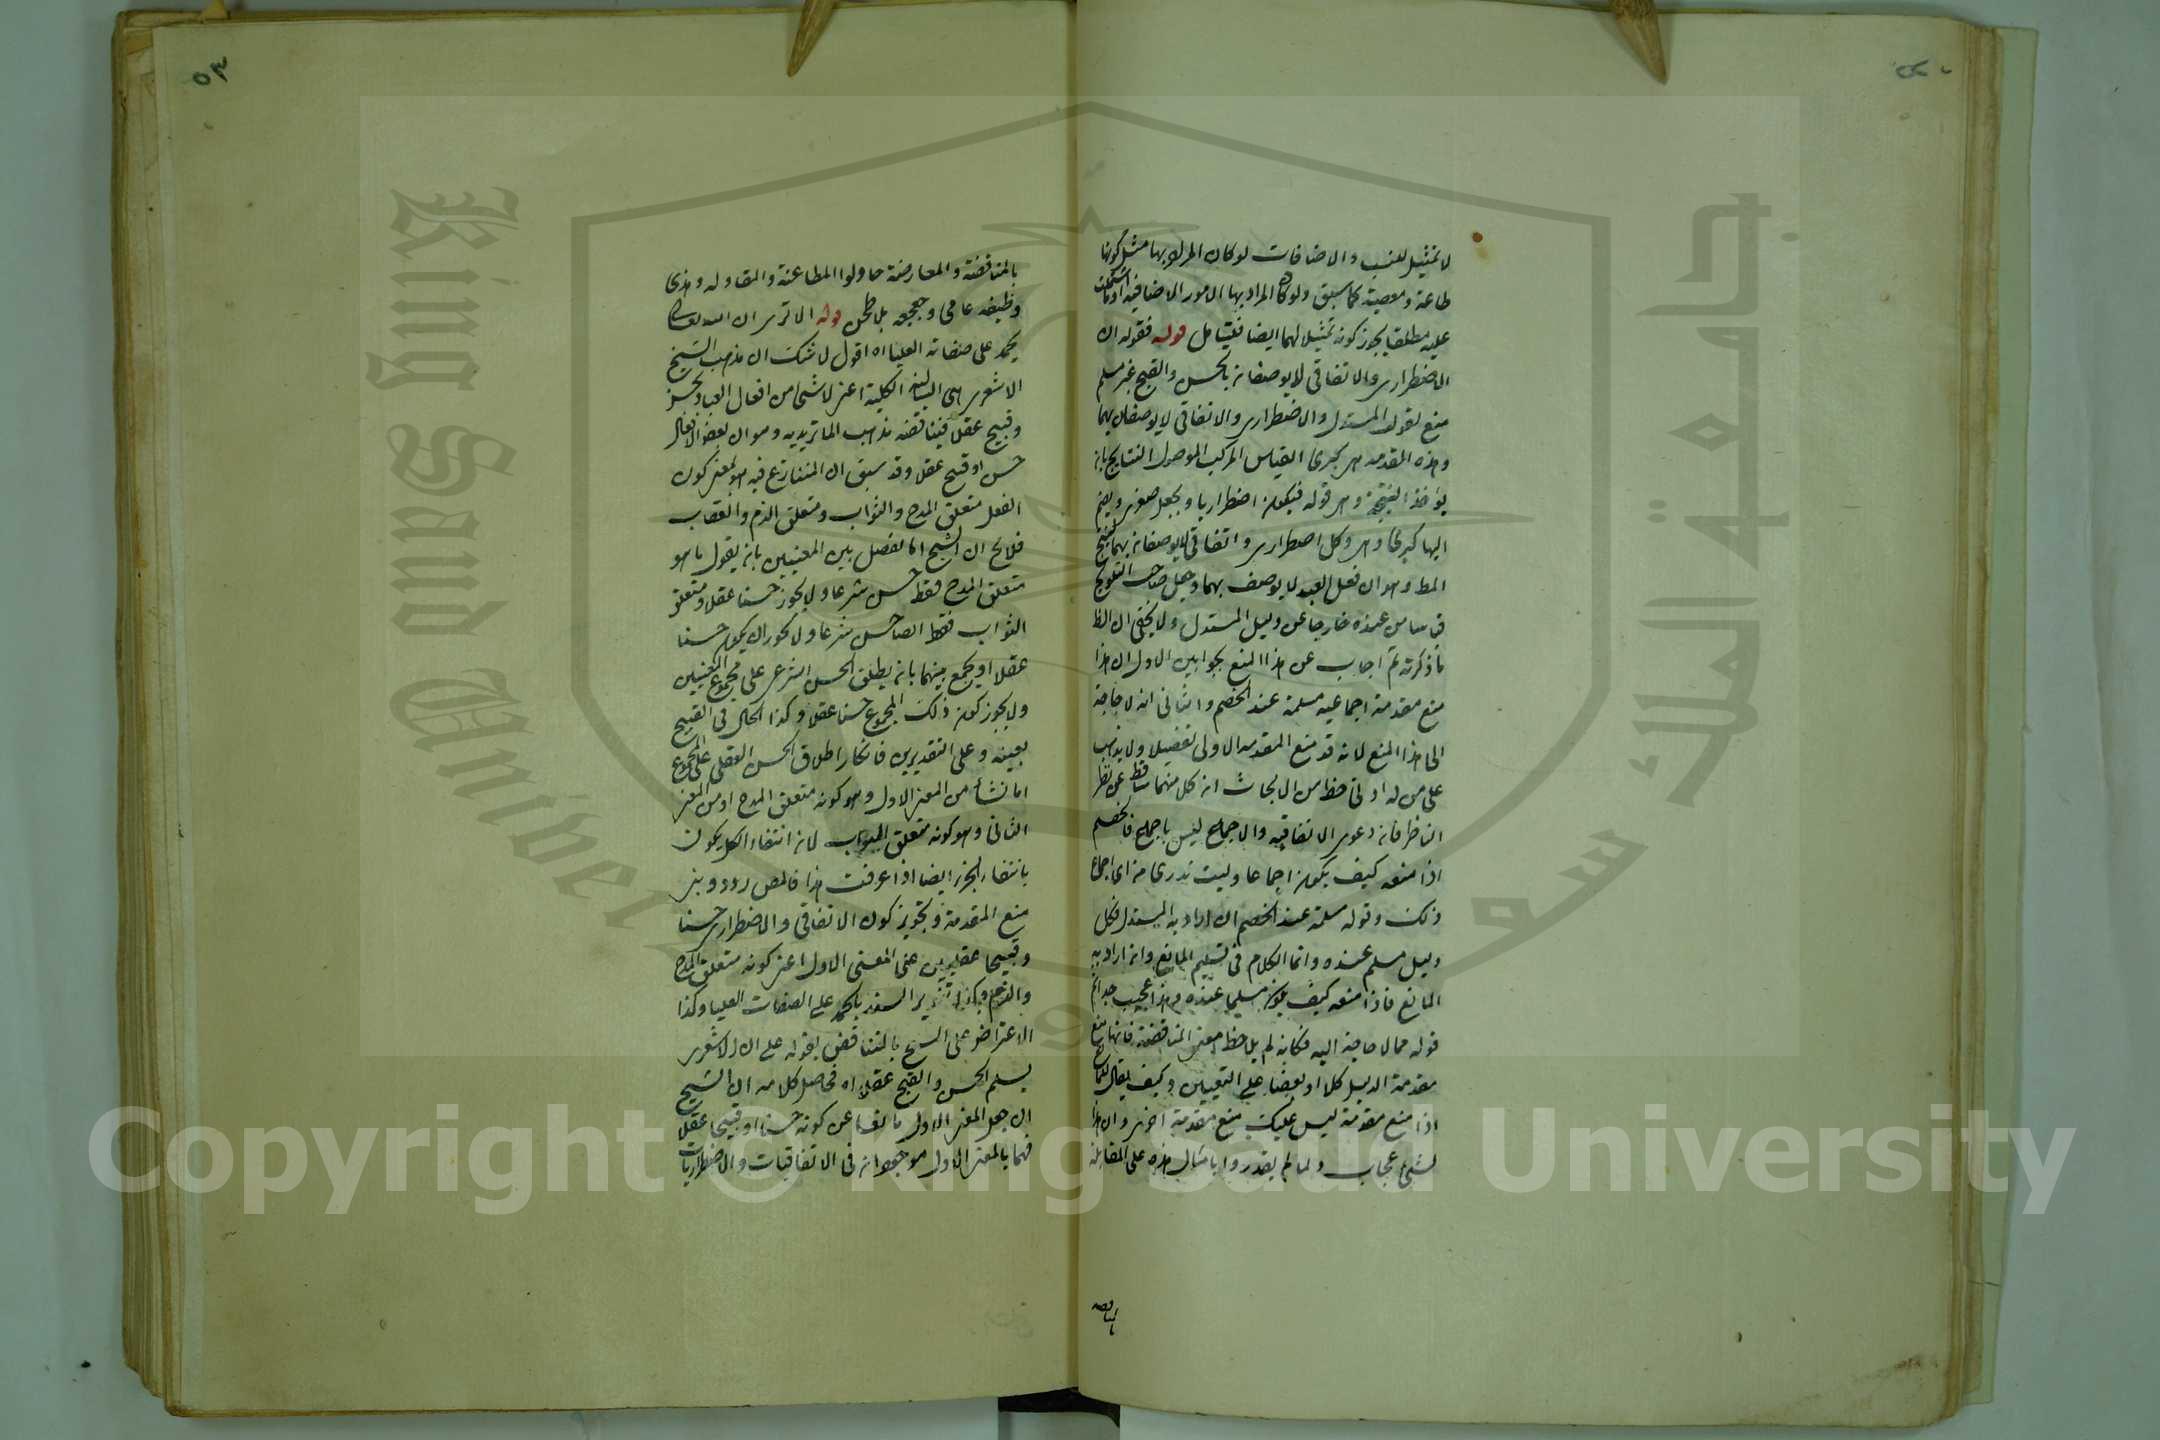 لا تمثيل للنسب والاضافات لو كان المراد بها مثل كونها
طاعة ومعصية كما سبق ولو كان المراد بها الامور الاضافية
عليه مطلقا يجوز كونه تمثيلا لهما ايضا فليتامل قوله فقوله ان
الاضطرارى والاتفاقى لا يوصفان بالحسن والقبح غير مسلم
منع لقول المستدل والاضطرارى والاتفاقى لا يوصفان بهما
وهذه المقدمة هى كبرى القياس المركب الموصول النتايج بان
يؤخذ النتيجة وهى قوله فيكون اضطراريا ويجعل صغرى ويضم
اليها كبرى وهى وكل اضطرارى واتفاقى لا يوصفان بهما لينتج
المط وهو ان فعل العبد لا يوصف بهما وجعل صاحب التلويح
قياسا من عنده خارجا عن دليل المستدل ولا يخفى ان الظ
ما ذكرته ثم اجاب عن هذا المنع بجوابين الاول ان هذا
منع مقدمة اجماعية مسلمة عند الخصم والثانى انه لا حاجة
الى هذا المنع لانه قد منع المقدمة الاولى تفصيلا ولا يذهب
على من له ادنى حظ من الابحاث ان كل منهما ساقط عن نظر
الناظر فان دعوى الاتفاقية والاجماع ليس باجماع فالخصم
اذا منعه كيف يكون اجماعا وليت ندرى من اى اجماع
ذلك وقوله مسلمة عند الخصم ان اراد به المستدل فكل
دليل مسلم عنده وانما الكلام فى تسليم المانع وان اراد به
المانع فاذا منعه كيف يكون مسلما عنده وهذا عجيب جدا ثم
قوله مما لا حاجة اليه فكانه لم يلاحظ معنى المناقضة فانها منع
مقدمة الدليل كلا او بعضا على التعيين وكيف يقال للمانع
اذا منع مقدمة ليس عليك منع مقدمة اخرى وان هذا
لشئ عجاب ولما لم يقدروا بامثال هذه على المقابلة
بالمناقضة
بالمناقضة والمعارضة حاولوا المطاعنة والمقاولة وهذى
وظيفة عامى وجعجعة بلا طحن قوله الا ترى ان الله تعالى
يحمد على صفاته العليا اه اقول لا شك ان مذهب الشيخ
الاشعرى هى السالبة الكلية اعنى لا شئ من افعال العباد بحسن
وقبيح عقلا فيناقضه مذهب الماتريدية وهو ان بعض الافعال
حسن او قبيح عقلا وقد سبق ان المتنازع فيه هو بمعنى كون
الفعل متعلق المدح والثواب ومتعلق الذم والعقاب
فلا يخ ان الشيخ اما يفصل بين المعنيين بان يقول ما هو
متعلق المدح فقط حسن شرعا ولا يجوز حسنا عقلا ومتعلق
الثواب فقط ايضا حسن شرعا ولا يجوز ان يكون حسنا
عقلا او يجمع بينهما بان يطلق الحسن الشرعى على مجموع المعنيين
ولا يجوز كون ذلك المجموع حسنا عقلا وكذا الحال فى القبيح
بعينه وعلى التقديرين فانكار اطلاق الحسن العقلى على المجموع
اما نشأ من المعنى الاول وهو كونه متعلق المدح او من المعنى
الثانى وهو كونه متعلق الثواب لان انتفاء الكل يكون
بانتفاء الجزء ايضا اذا عرفت هذا فالمص ردد وبنى
منع المقدمة وتجويز كون الاتفاقى والاضطرارى حسنا
وقبيحا عقليين على المعنى الاول اعنى كونه متعلق المدح
والذم السند بالحمد على الصفات العليا وكذا
الاعتراض على الشيخ بالتناقض بقوله على ان الاشعرى
يسلم الحسن والقبح عقلا اه فحاصل كلامه ان الشيخ
ان جعل المعنى الاول مانعا عن كونه حسنا او قبيحا عقلا
فهما بالمعنى الاول موجودان فى الاتفاقيات والاضطراريات
٥٣
King Saud University
جامعة الملك سعود
Copyright © King Saud University